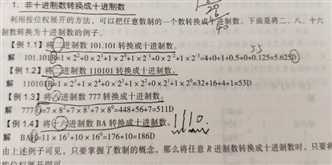 1. 非十进制数转换成十进制数
利用按位权展开的方法,可以把任意数制的一个数转换成十进制数。下面是将二、八、十六
进制数转换为十进制数的例子。
【例 1.1】 将二进制数 101.101 转换成十进制数。
解 101.101B=1×2²+0×2¹+1×2⁰+1×2⁻¹+0×2⁻²+1×2⁻³=4+0+1+0.5+0+0.125=5.625D
【例 1.2】 将二进制数 110101 转换成十进制数。
解 110101B=1×2⁵+1×2⁴+0×2³+1×2²+0×2¹+1×2⁰=32+16+4+1=53D
【例 1.3】 将八进制数 777 转换成十进制数。
解 777Q=7×8²+7×8¹+7×8⁰=448+56+7=511D
【例 1.4】 将十六进制数 BA 转换成十进制数。
解 BA H=11×16¹+10×16⁰=176+10=186D
由上述例子可见,只要掌握了数制的概念,那么将任意 R 进制数转换成十进制数时,只要